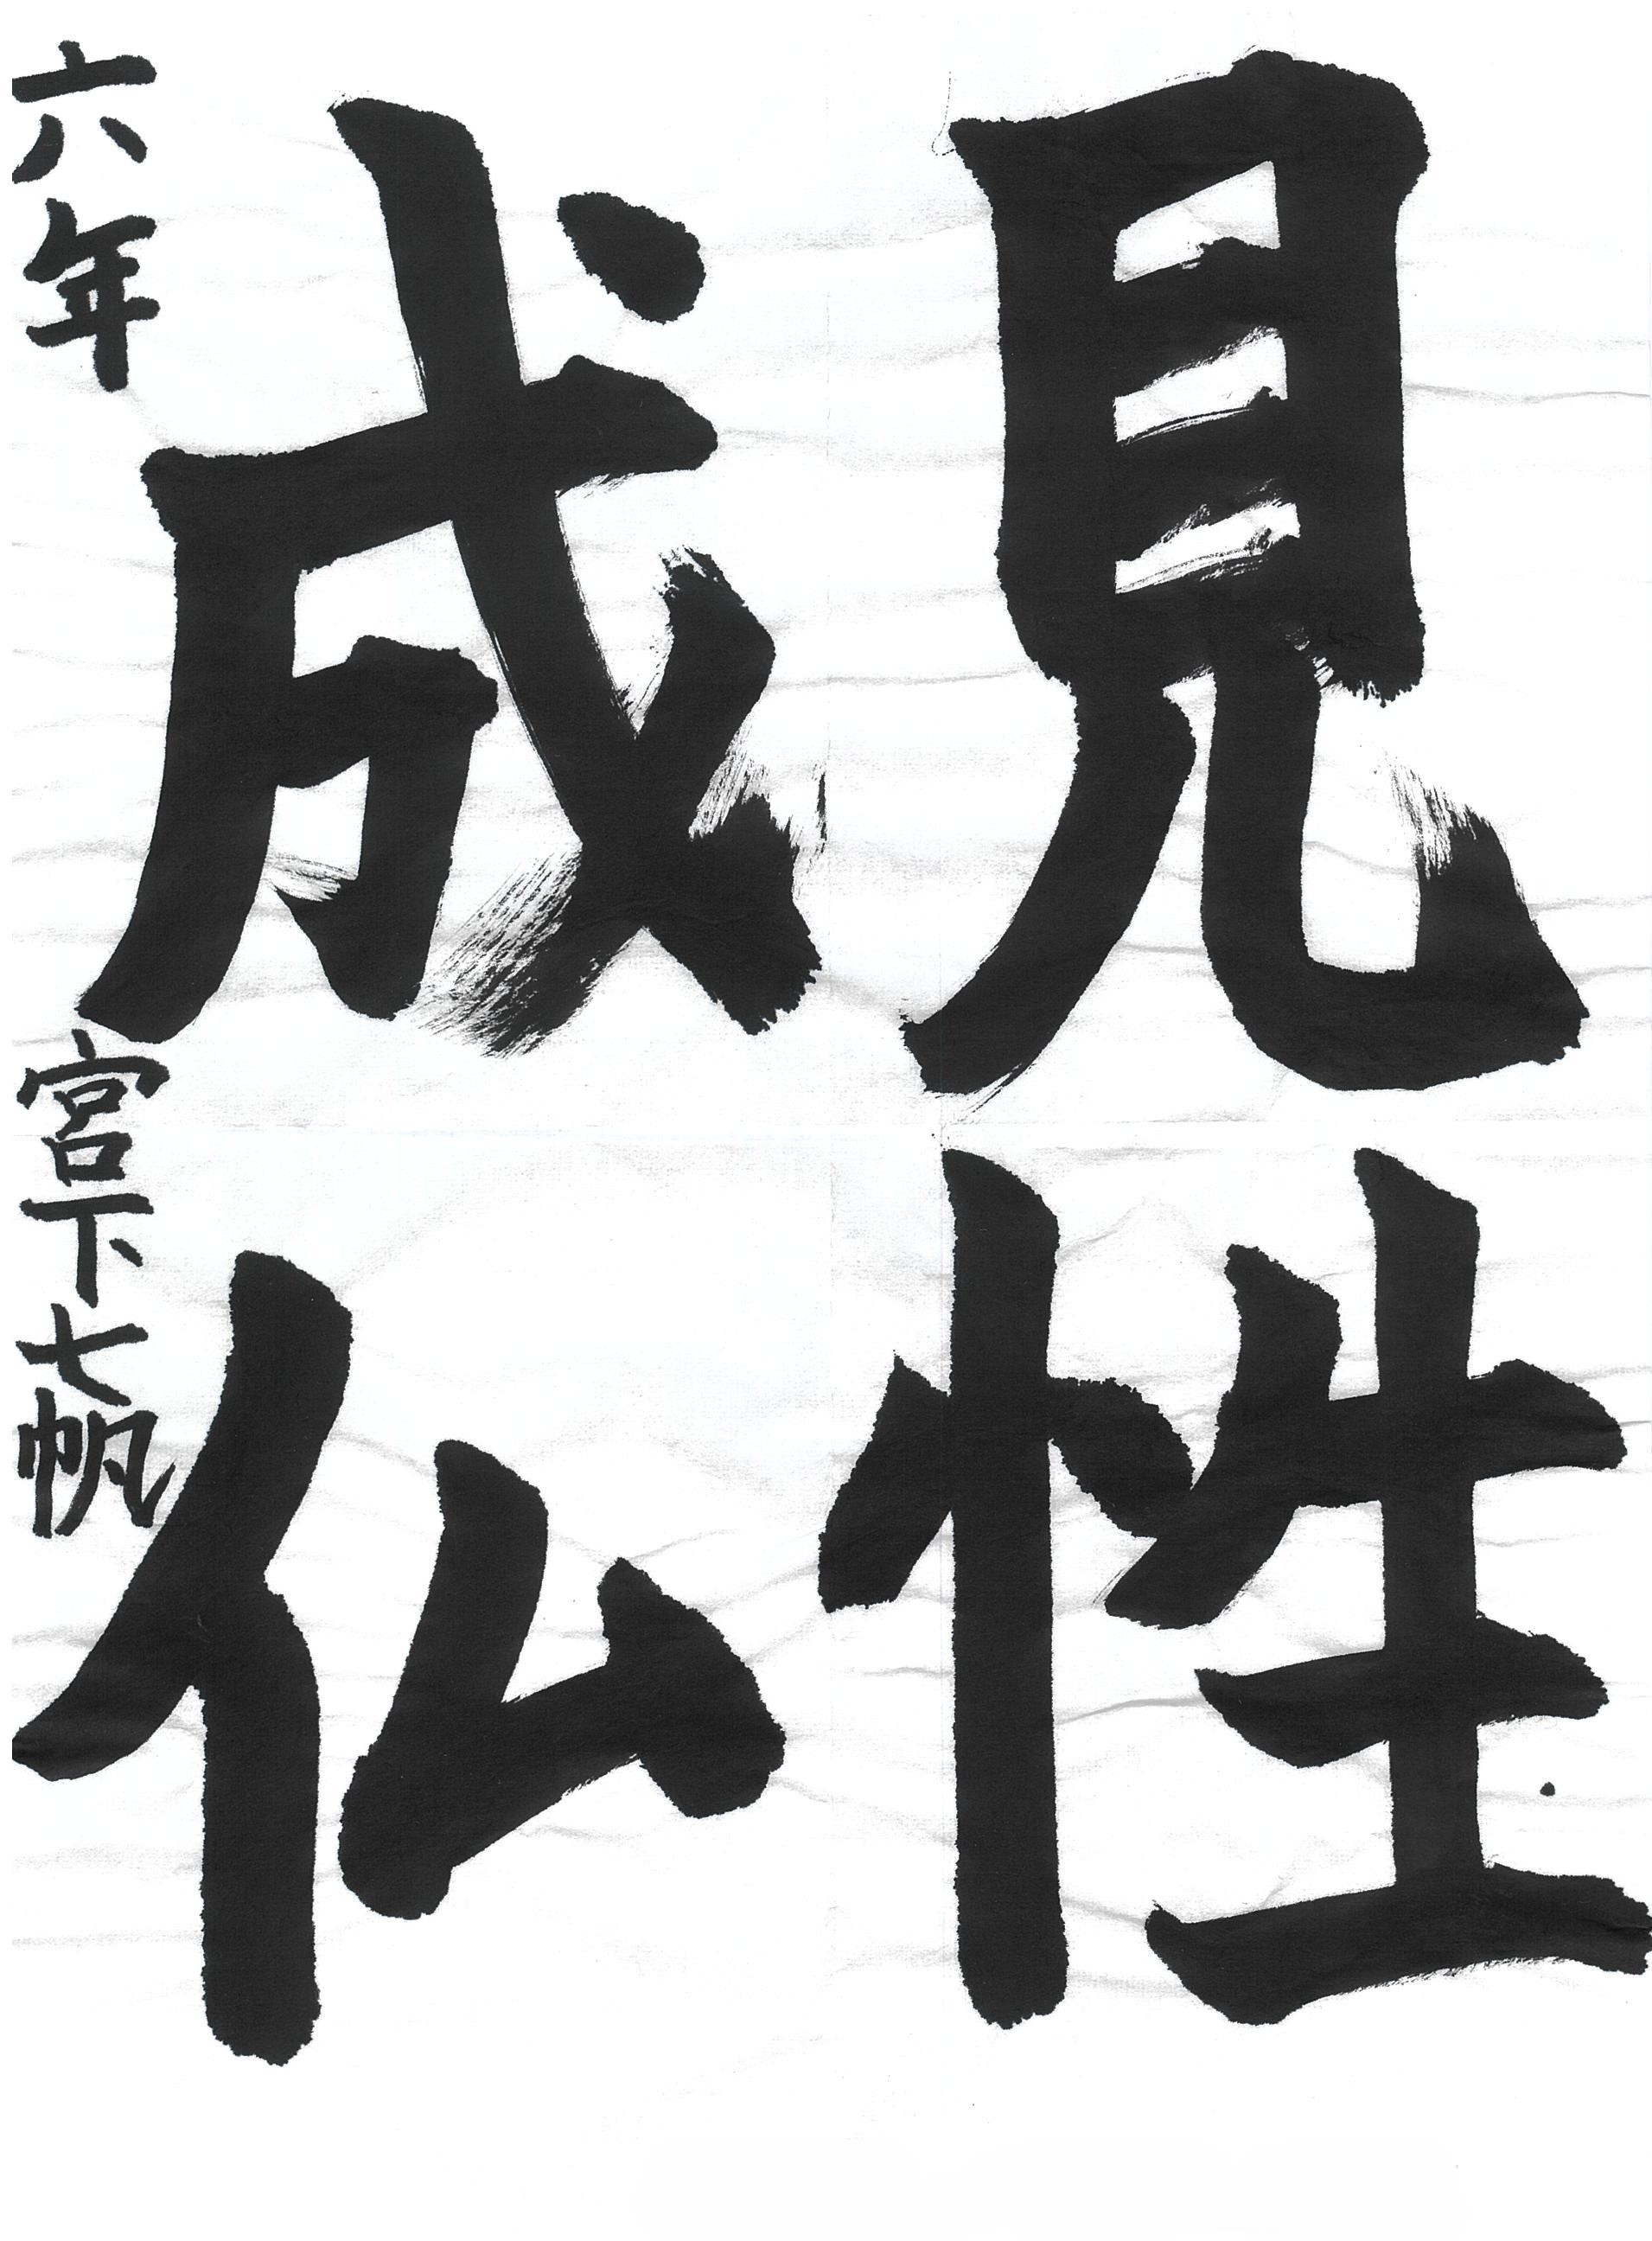 見性
成仏
六年 宮下七帆